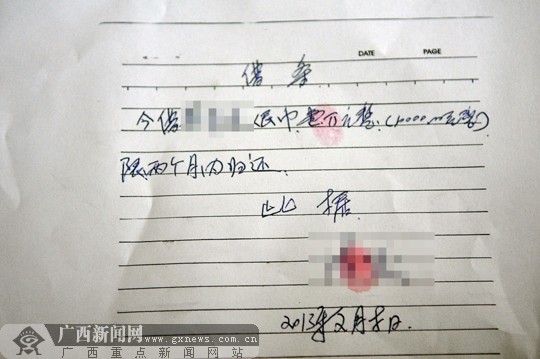 DATE PAGE
借条
今借 民币 万元整
限两个月内归还
此据
2013年 月 日
广西新闻网
www.gxnews.com.cn
广西重点新闻网站